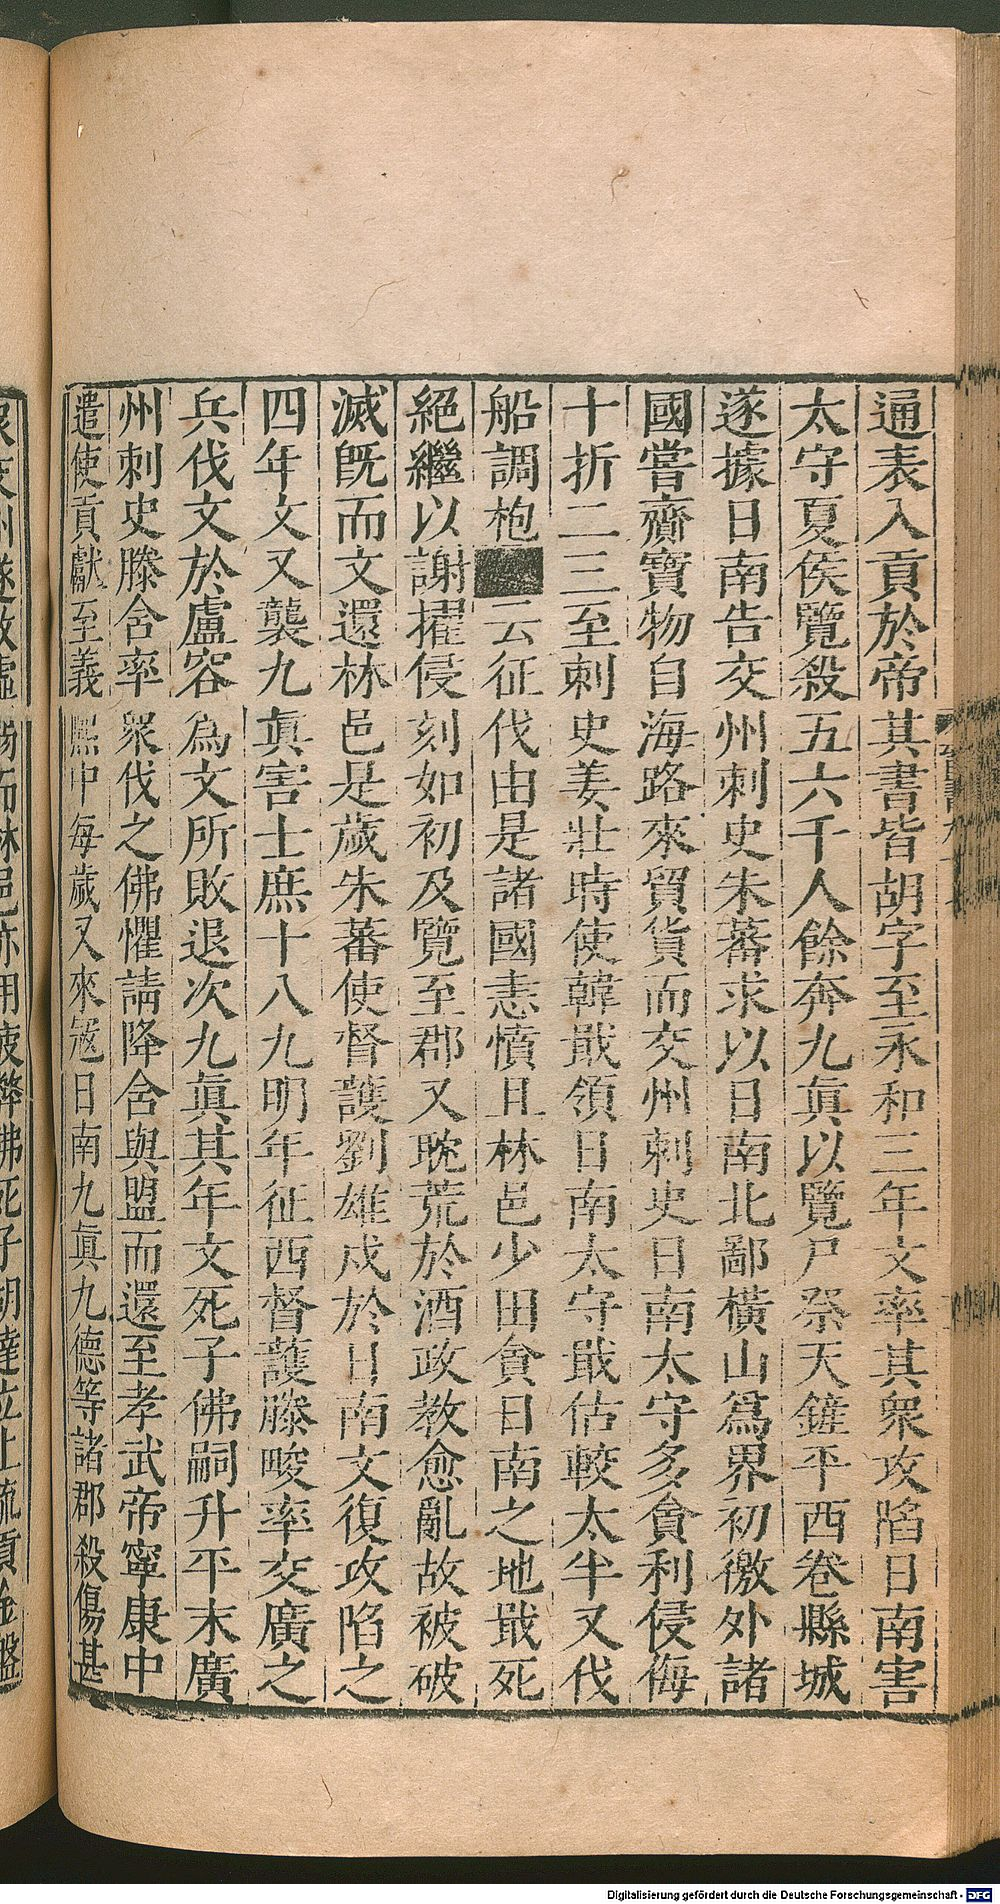 通表入貢於帝其書皆胡字至永和三年文率其衆攻陷日南害
太守夏侯覽殺五六千人餘奔九眞以覽尸祭天鏟平西卷縣城
遂據日南告交州刺史朱蕃求以日南北鄙橫山爲界初徼外諸
國嘗齎寶物自海路來貿貨而交州刺史日南太守多貪利侵侮
十折二三至刺史姜壯時使韓戢領日南太守戢估較太半又伐
船調枹云征伐由是諸國恚憤且林邑少田貪日南之地戢死
絕繼以謝擢侵刻如初及覽至郡又耽荒於酒政教愈亂故被破
滅旣而文還林邑是歲朱蕃使督護劉雄戍於日南文復攻陷之
四年文又襲九眞害士庶十八九明年征西督護滕畯率交廣之
兵伐文於盧容爲文所敗退次九眞其年文死子佛嗣升平末廣
州刺史滕舍率衆伐之佛懼請降舍與盟而還至孝武帝寧康中
遣使貢獻至義熙中每歲又來寇日南九眞九德等諸郡殺傷甚
Digitalisierung gefördert durch die Deutsche Forschungsgemeinschaft - DFG